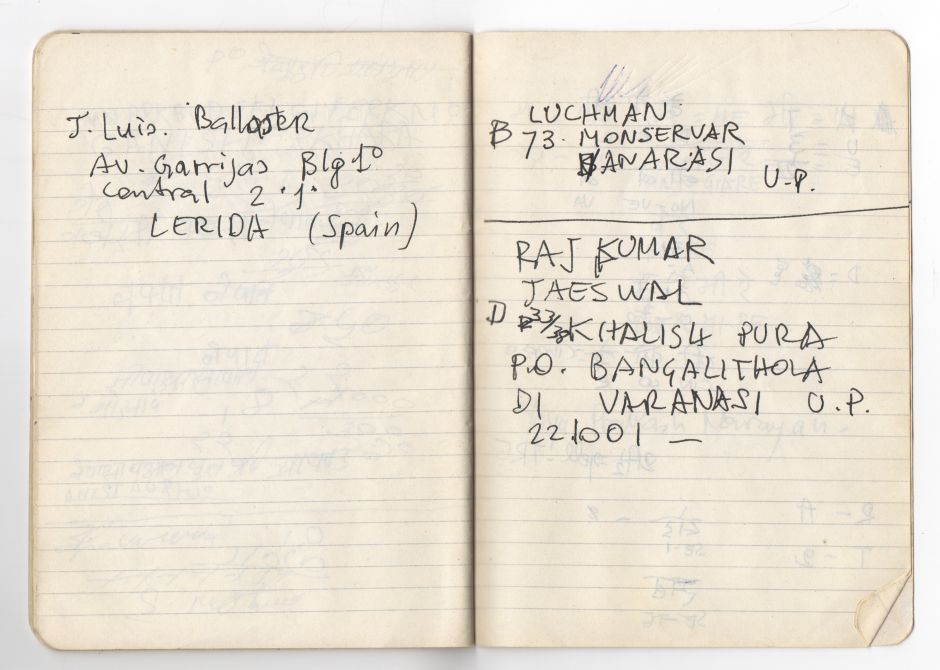 J. Luis. Ballester
Av. Garrijas Blg 1º
Central 2. 1.
LERIDA (Spain)
LUCHMAN
B 73. MONSERVAR
BANARASI
U.P.
RAJ KUMAR
JAESWAL
D 33/38 KHALISH PURA
P.O. BANGALITHOLA
DI VARANASI U.P.
221001 —